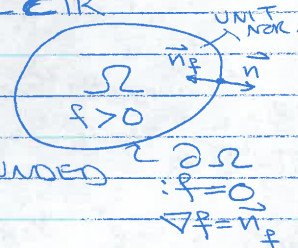 UNIT
NOR.
n⃗_f n⃗
Ω
f>0
UNDED
∂Ω
: f=0
∇f=n⃗_f